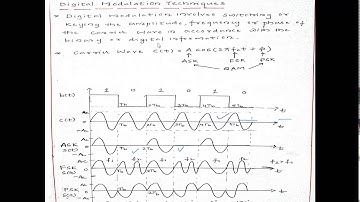 Digital Modulation Techniques
• Digital modulation involves switching or
keying the amplitude, frequency or phase of
the carrier wave in accordance with the
binary or digital information.
• Carrier Wave c(t) = A cos(2πfct + φ)
ASK FSK PSK
QAM
1 0 1 0 1 0
b(t)
Tb 2Tb 3Tb 4Tb 5Tb t
Ac
c(t)
-Ac
Ac
ASK
s(t)
-Ac
Ac f1 f2 f1 f2 f1
FSK
s(t)
-Ac
Ac
PSK
t